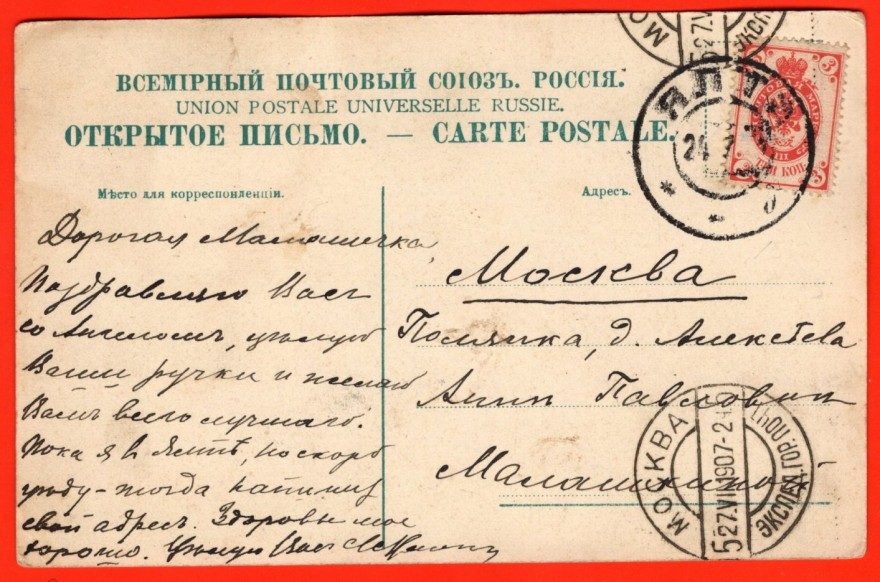 ВСЕМІРНЫЙ ПОЧТОВЫЙ СОЮЗЪ. РОССІЯ.
UNION POSTALE UNIVERSELLE RUSSIE.
ОТКРЫТОЕ ПИСЬМО. — CARTE POSTALE.
Мѣсто для корреспонденціи.
Дорогая Мамашичка
Поздравляю Васъ
со Ангеломъ, цѣлую
Ваши ручки и желаю
Вамъ всего лучшаго.
Пока я в Ялтѣ, но скоро
уѣду - тогда напишу
свой адресъ. Здоровье мое
хорошо. Цѣлую Васъ
Адресъ.
Москва
Полянка, д. Алексѣева
Аннѣ Павловнѣ
Малашкиной
МОСКВА
27.VI
ЭКСП
ЯЛТА
24
3
3
ТРИ КОП.
3
МОСКВА
5 27.VII.1907-2
ЭКСПЕД. ГОР. ПОЧТЫ